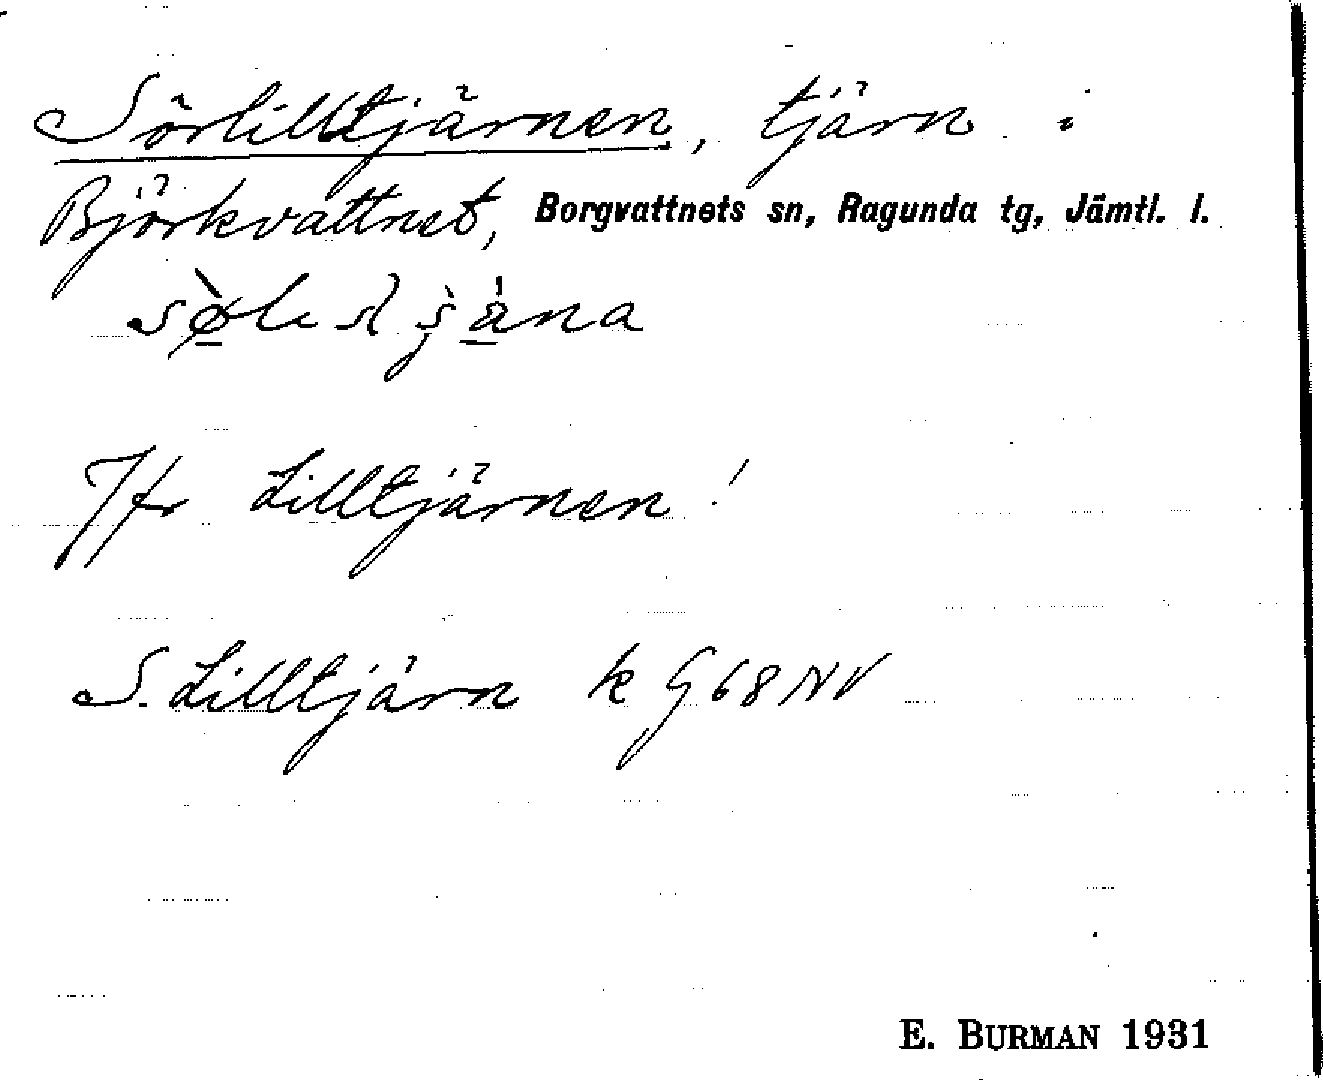 Sörlilltjärnen, tjärn i
Björkvattnet, Borgvattnets sn, Ragunda tg, Jämtl. l.
Jfr Lilltjärnen!
S. Lilltjärn k G 68 NV
E. BURMAN 1931